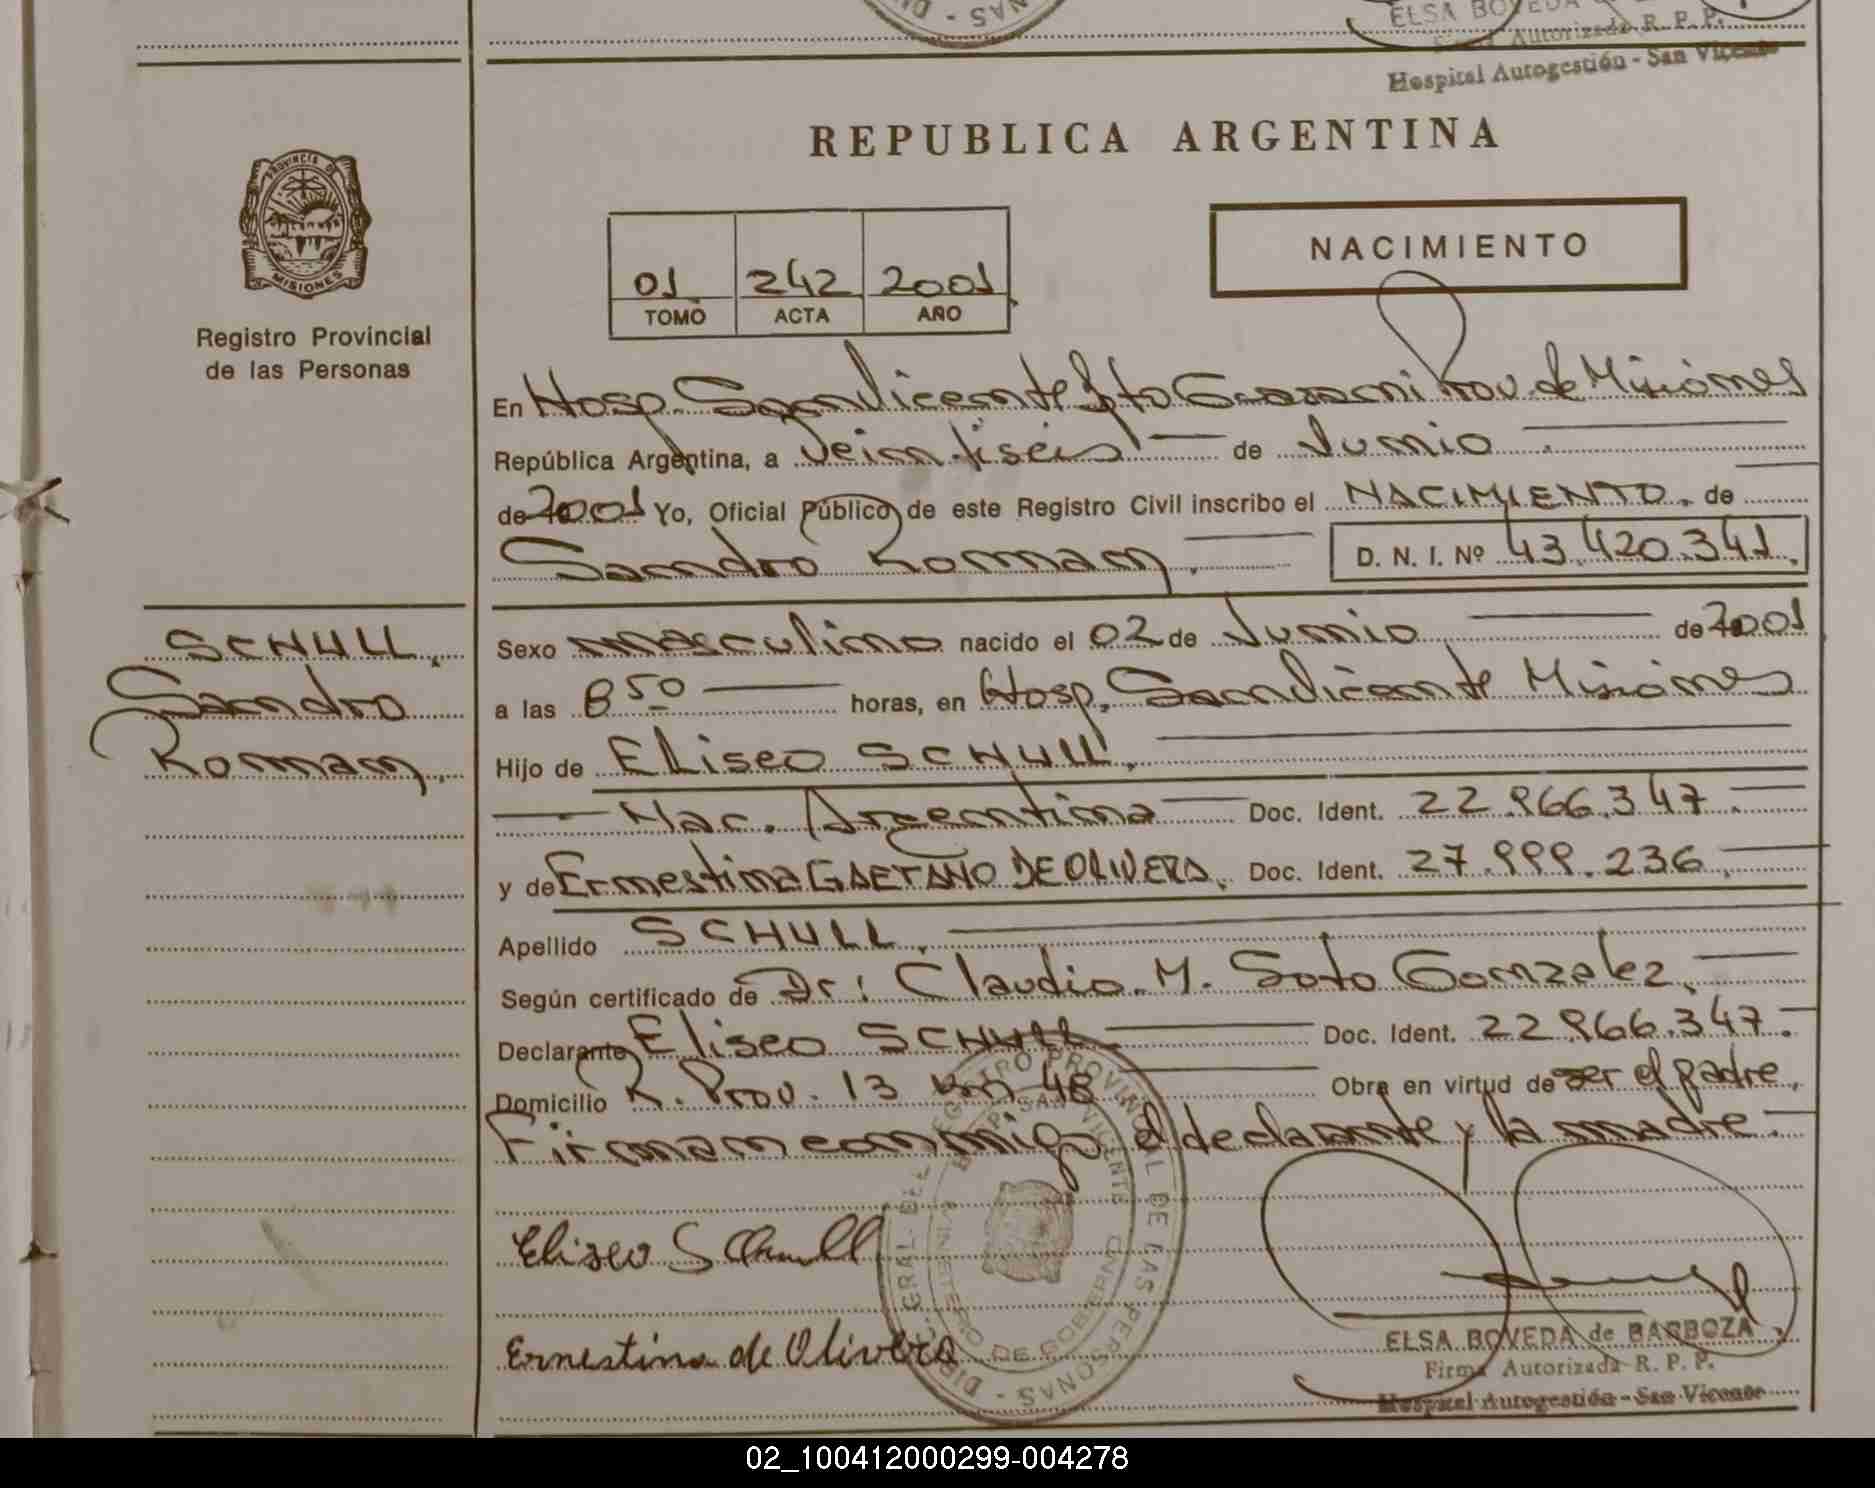 ELSA BOVEDA
Firma Autorizada R. P. P.
Hospital Autogestión - San Vicente
REPUBLICA ARGENTINA
PROVINCIA DE MISIONES
Registro Provincial
de las Personas
01 242 2001
TOMO ACTA AÑO
NACIMIENTO
En Hosp. San Vicente Dto Guarani Prov. de Misiones
República Argentina, a veintiséis de Junio
de 2001 Yo, Oficial Público de este Registro Civil inscribo el NACIMIENTO. de
Sandro Roman. D. N. I. Nº 43.420.341.
SCHULL,
Sandro
Roman.
Sexo masculino nacido el 02 de Junio de 2001
a las 8 50 horas, en Hosp. San Vicente Misiones
Hijo de Eliseo SCHULL.
Nac. Argentina Doc. Ident. 22.966.347.
y de Ernestina GAETANO DE OLIVERA. Doc. Ident. 27.999.236.
Apellido SCHULL.
Según certificado de Dr: Claudio M. Soto Gonzalez.
Declarante Eliseo SCHULL Doc. Ident. 22.966.347.
Domicilio R. Prov. 13 km 48 Obra en virtud de ser el padre.
Firman conmigo el declarante y la madre.
Eliseo Schull
Ernestina de Olivera
DIR. GRAL. DEL REGISTRO PROVINCIAL DE LAS PERSONAS
HOSP. SAN VICENTE
MINISTERIO DE GOBIERNO
ELSA BOVEDA de BARBOZA
Firma Autorizada R. P. P.
Hospital Autogestión - San Vicente
02_100412000299-004278